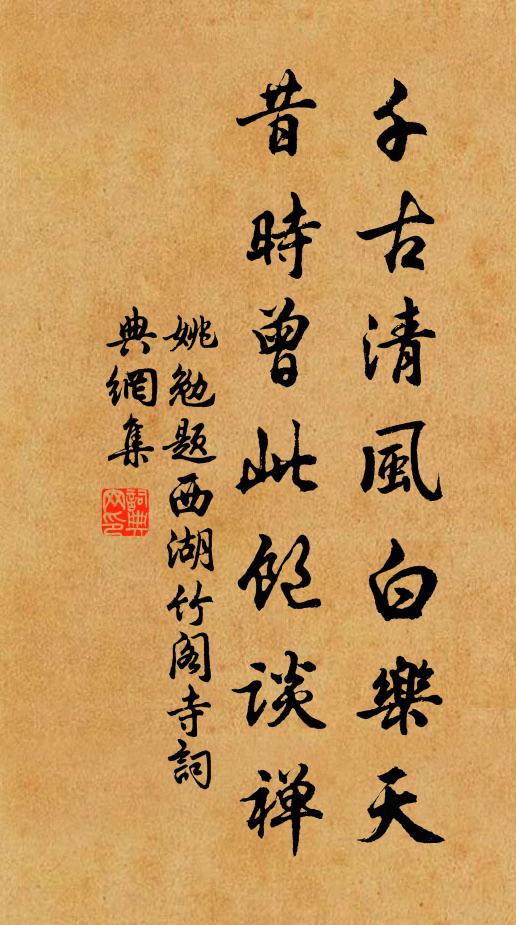 千古清風白樂天
昔時曾此飽談禪
姚勉题西湖竹阁寺詞
典網集
詞典
网印